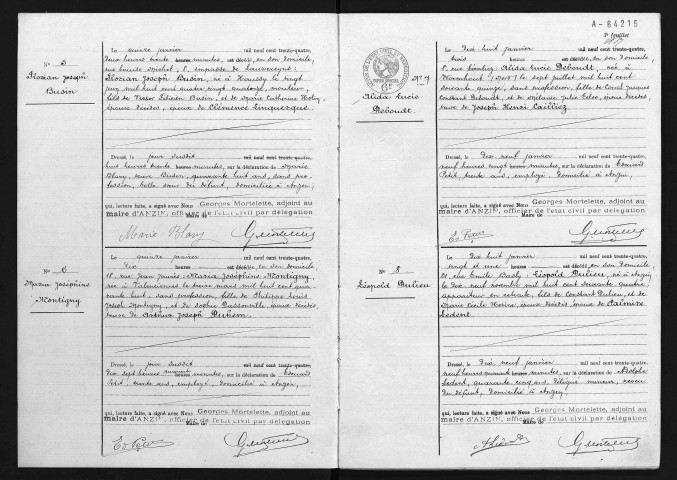 N° 5
Florian Joseph
Busin
Le quinze janvier mil neuf cent trente-quatre,
deux heures trente minutes, est décédé, en son domicile,
rue Louise Michel, 8, impasse de
Florian Joseph Busin, né à Haussy le vingt
mil huit cent quatre vingt quatorze, mineur,
fils de Victor Busin, et de Marie Catherine
époux décédés, époux de Clémence Linquercque
Dressé, le jour susdit mil neuf cent trente-quatre,
huit heures trente minutes, sur la déclaration de Marie
Blary, veuve Busin, quarante huit ans, sans pro-
fession, belle sœur du défunt, domiciliée à Anzin,
qui, lecture faite, a signé avec Nous Georges Mortelette, adjoint au
maire d'ANZIN, officier de l'état civil par délégation
Maire de
Marie Blary
N° 6
Maria Josephine
Montigny
Le quinze janvier mil neuf cent trente-quatre,
dix heures est décédée, en son domicile,
18, rue Jean Jaurès, Maria Joséphine Montigny,
née à Valenciennes le treize mars mil huit cent qua-
rante huit, sans profession, fille de Philippe Louis
Joseph Montigny, et de Sophie Dassonville, époux décédés,
veuve de Arthur Joseph Duhem
Dressé, le jour susdit mil neuf cent trente-quatre,
dix sept heures minutes, sur la déclaration de Edouard
Petit, trente ans, employé, domicilié à Anzin,
qui, lecture faite, a signé avec Nous Georges Mortelette, adjoint au
maire d'ANZIN, officier de l'état civil par délégation
Maire de
A-64215
feuillet
N° 7
Alida Lucie
Deboudt
Le dix huit janvier mil neuf cent trente-quatre,
trois heures est décédée, en son domicile,
8, rue Alida Lucie Deboudt, née à
Wormhout (Nord) le sept juillet mil huit cent
soixante quinze, sans profession, fille de
Constant Deboudt, et de Mélanie Julie époux décédés,
veuve de Joseph Henri Cailliez
Dressé, le dix neuf janvier mil neuf cent trente-quatre,
heures vingt minutes, sur la déclaration de Edouard
Petit, trente ans, employé, domicilié à Anzin,
qui, lecture faite, a signé avec Nous Georges Mortelette, adjoint au
maire d'ANZIN, officier de l'état civil par délégation
Maire de
N° 8
Léopold Dulieu
Le dix huit janvier mil neuf cent trente-quatre,
vingt et une heures est décédé, en son domicile,
21, rue Emile Léopold Dulieu, né à Anzin
le dix neuf novembre mil huit cent soixante quatre,
appariteur en retraite, fils de Constant Dulieu, et de
Marie Cécile époux décédés, époux de
Ledent
Dressé, le dix neuf janvier mil neuf cent trente-quatre,
neuf heures minutes, sur la déclaration de Adolphe
Ledent, quarante cinq ans, délégué mineur, neveu
du défunt, domicilié à Anzin,
qui, lecture faite, a signé avec Nous Georges Mortelette, adjoint au
maire d'ANZIN, officier de l'état civil par délégation
Maire de